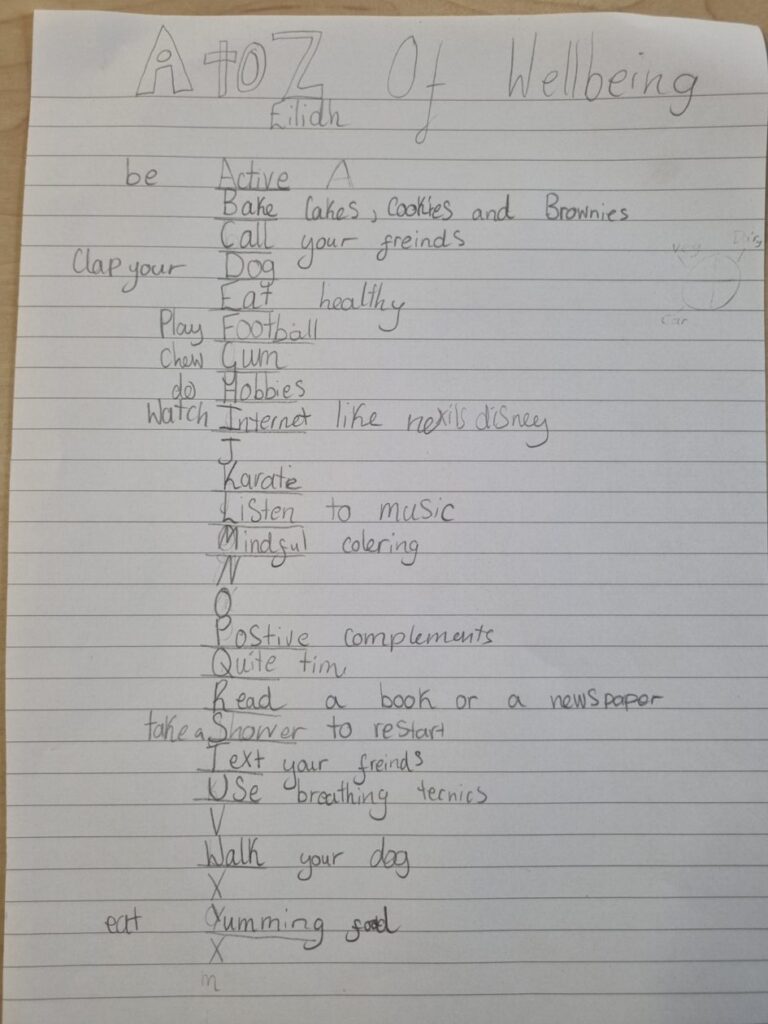 A to Z Of Wellbeing
Eilidh
be Active A
Bake Cakes, Cookies and Brownies
Call your freinds
Clap your Dog
Eat healthy
Play Football
Chew Gum
do Hobbies
Watch Internet like nexils disney
J
Karate
Listen to music
Mindful colering
N
O
Postive complements
Quite tim
Read a book or a newspaper
take a Shower to restart
Text your freinds
Use breathing tecnics
V
Walk your dog
X
eat Yumming food
X
n
Veg
Car